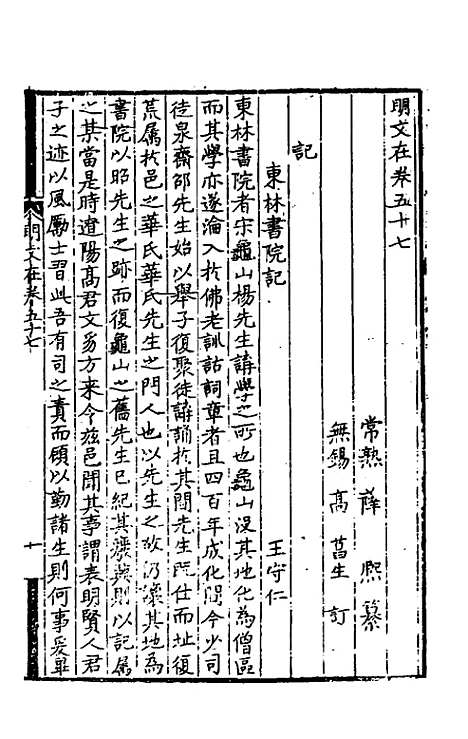 明文在卷五十七
常熟薛熙纂
無錫高菖生訂
記
東林書院記
王守仁
東林書院者宋龜山楊先生講學之所也龜山沒其地化為僧區
而其學亦遂淪入於佛老訓詁詞章者且四百年成化間今少司
徒泉齋邵先生始以舉子復聚徒講誦於其間先生既仕而址復
荒屬於邑之華氏華氏先生之門人也以先生之故仍讓其地為
書院以昭先生之跡而復龜山之舊先生已紀其廢興則以記屬
之某當是時遼陽高君文豸方来令兹邑聞其事謂表明賢人君
子之迹以風勵士習此吾有司之責而顧以勤諸生則何事爰畢
明文在卷五十七
十